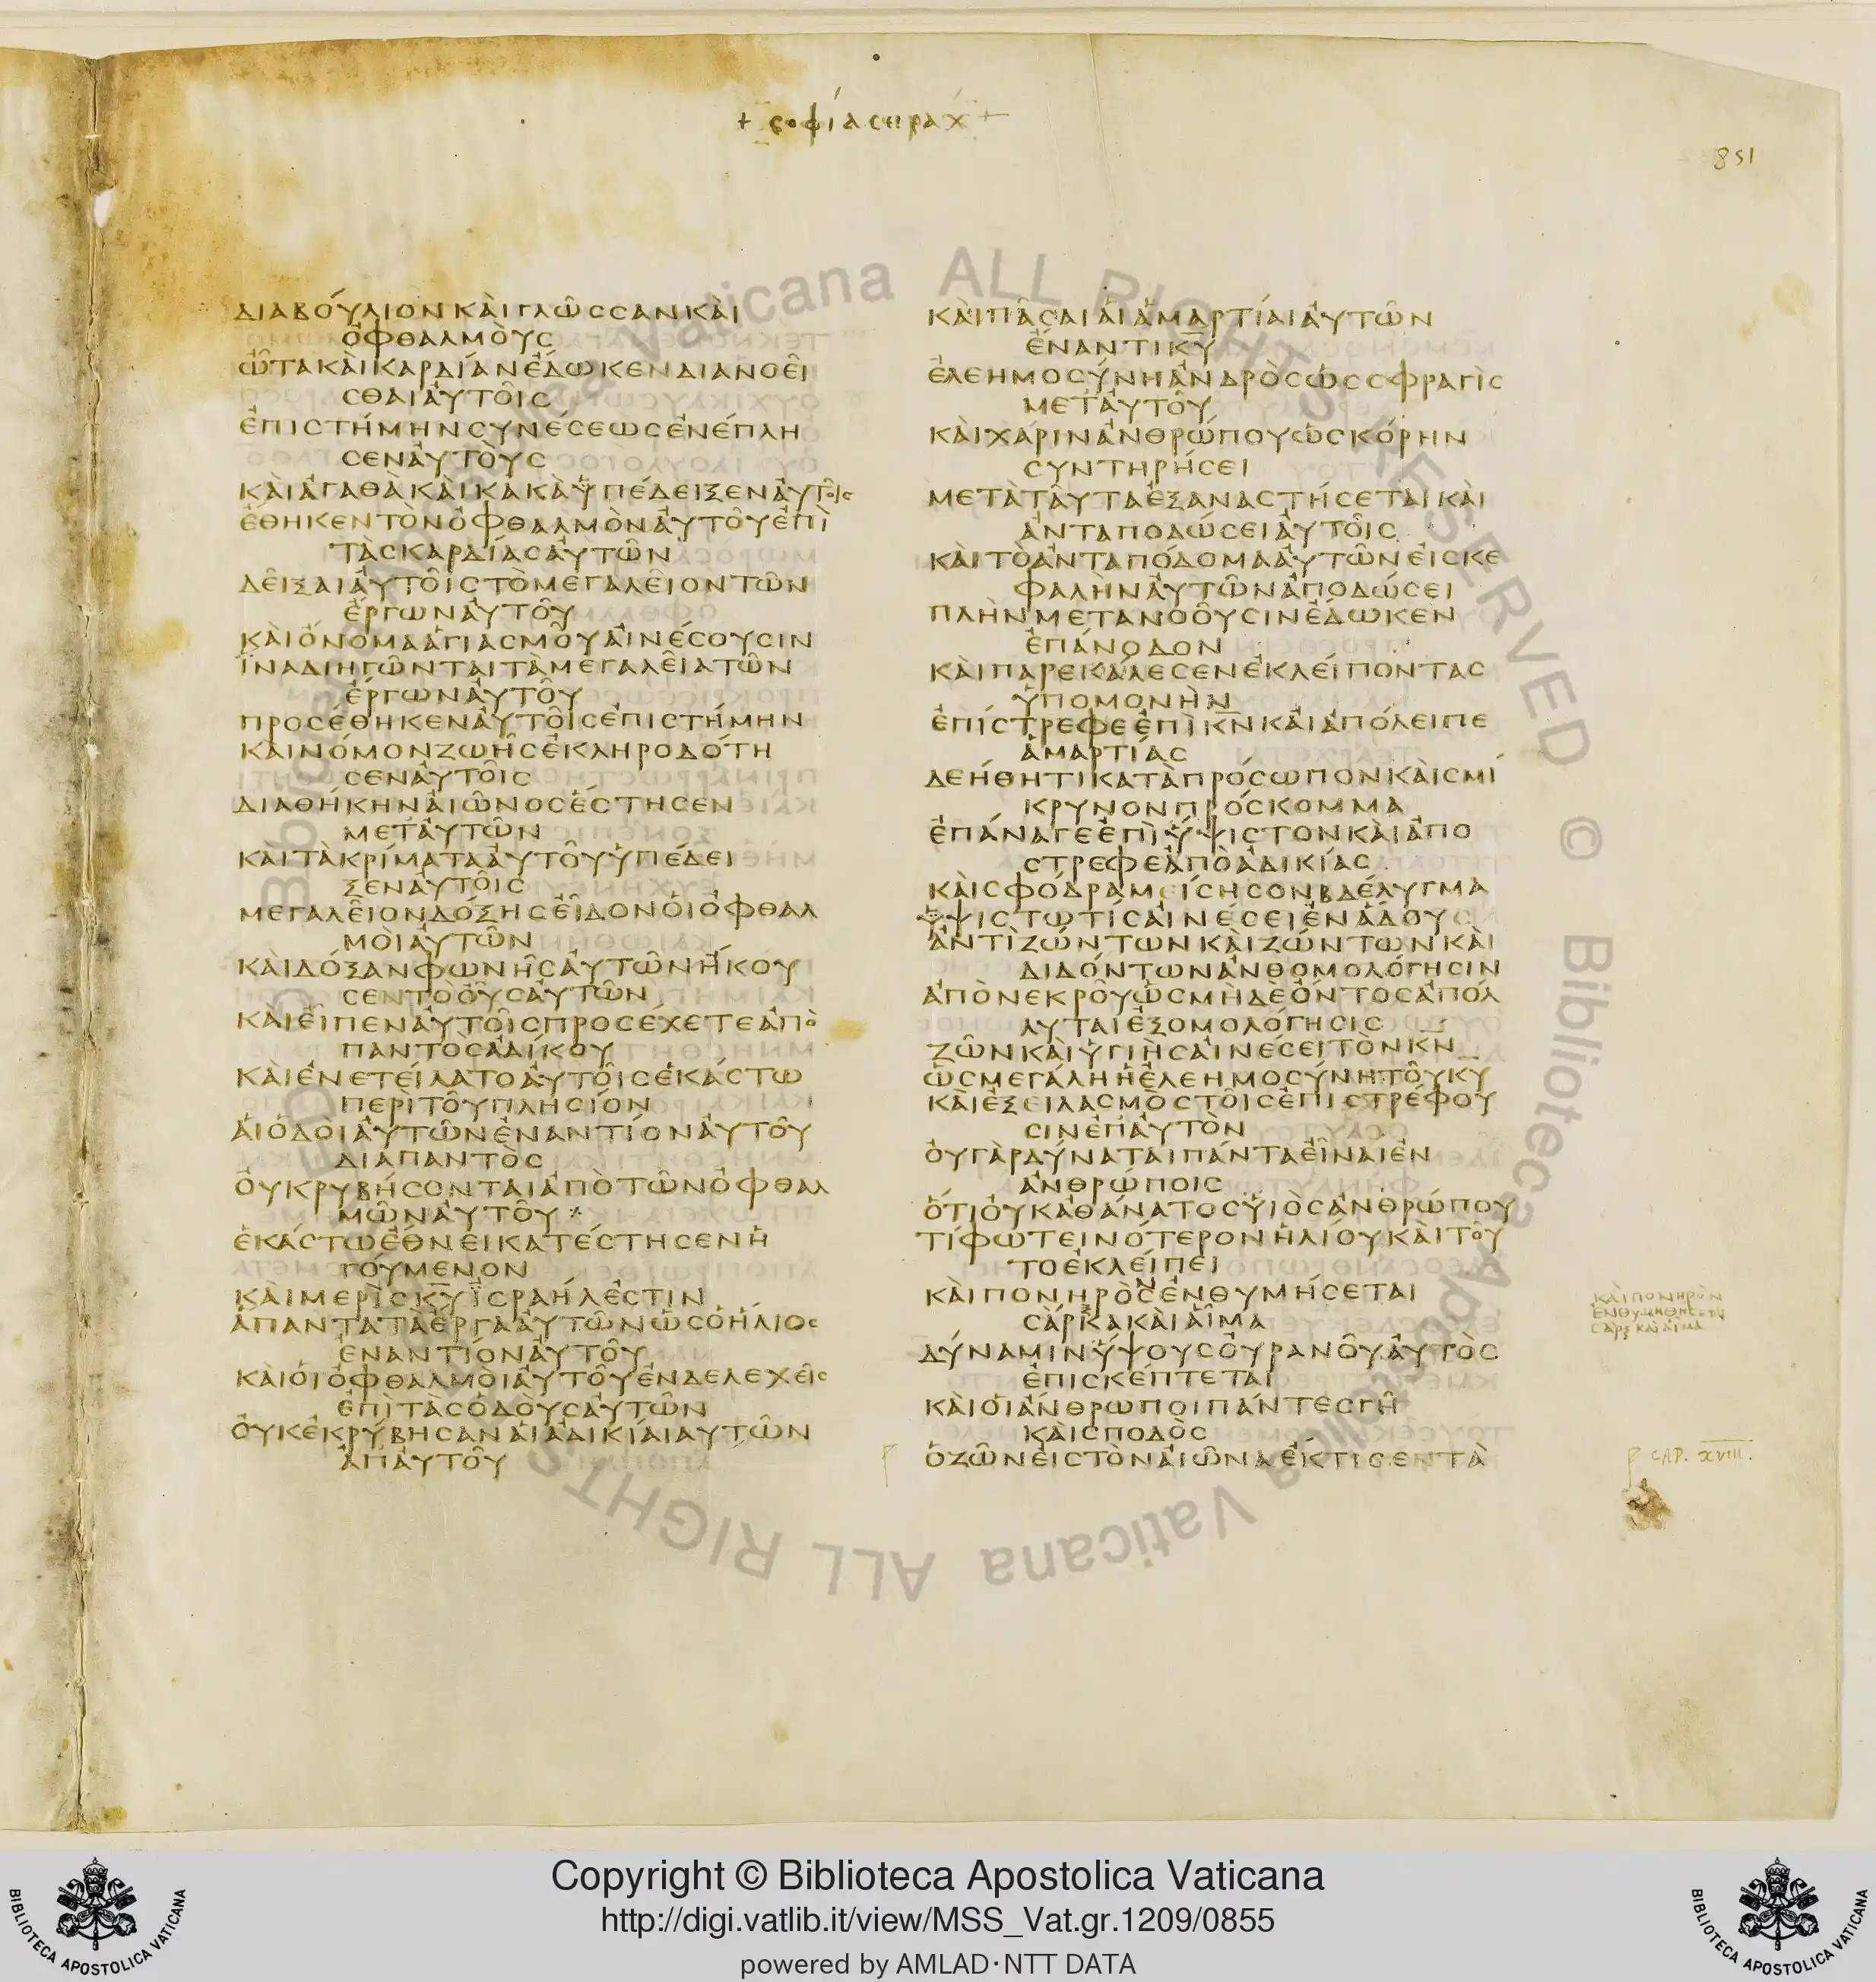 + σοφία σειραχ +
851
ΔΙΑΒΟΎΛΙΟΝΚΑῚΓΛΩ͂ΣΣΑΝΚΑῚ
ὈΦΘΑΛΜΟῪΣ
ὮΤΑΚΑῚΚΑΡΔΊΑΝἔΔΩΚΕΝΔΙΑΝΟΕΙ͂
ΣΘΑΙΑΥ̓ΤΟΙ͂Σ
ἘΠΙΣΤΉΜΗΝΣΥΝΈΣΕΩΣἘΝΈΠΛΗ
ΣΕΝΑΥ̓ΤΟῪΣ
ΚΑῚἈΓΑΘᾺΚΑῚΚΑΚᾺὙΠΈΔΕΙΞΕΝΑΥ̓ΤΟΙ͂Σ
ἔΘΗΚΕΝΤῸΝὈΦΘΑΛΜῸΝΑΥ̓ΤΟΥ͂ἘΠῚ
ΤᾺΣΚΑΡΔΊΑΣΑΥ̓ΤΩ͂Ν
ΔΕΙ͂ΞΑΙΑΥ̓ΤΟΙ͂ΣΤῸΜΕΓΑΛΕΙ͂ΟΝΤΩ͂Ν
ἔΡΓΩΝΑΥ̓ΤΟΥ͂
ΚΑῚὌΝΟΜΑἉΓΙΑΣΜΟΥ͂ΑἸΝΈΣΟΥΣΙΝ
ἽΝΑΔΙΗΓΩ͂ΝΤΑΙΤᾺΜΕΓΑΛΕΙ͂ΑΤΩ͂Ν
ἔΡΓΩΝΑΥ̓ΤΟΥ͂
ΠΡΟΣΈΘΗΚΕΝΑΥ̓ΤΟΙ͂ΣἘΠΙΣΤΉΜΗΝ
ΚΑῚΝΌΜΟΝΖΩΗ͂ΣἘΚΛΗΡΟΔΌΤΗ
ΣΕΝΑΥ̓ΤΟΙ͂Σ
ΔΙΑΘΉΚΗΝΑἸΩ͂ΝΟΣἔΣΤΗΣΕΝ
ΜΕΤΑΥ̓ΤΩ͂Ν
ΚΑῚΤᾺΚΡΊΜΑΤΑΑΥ̓ΤΟΥ͂ὙΠΈΔΕΙ
ΞΕΝΑΥ̓ΤΟΙ͂Σ
ΜΕΓΑΛΕΙ͂ΟΝΔΌΞΗΣΕἾΔΟΝΟἹὈΦΘΑΛ
ΜΟῚΑΥ̓ΤΩ͂Ν
ΚΑῚΔΌΞΑΝΦΩΝΗ͂ΣΑΥ̓ΤΩ͂ΝἬΚΟΥ
ΣΕΝΤῸΟΥ̓͂ΣΑΥ̓ΤΩ͂Ν
ΚΑῚΕἾΠΕΝΑΥ̓ΤΟΙ͂ΣΠΡΟΣΈΧΕΤΕἈΠῸ
ΠΑΝΤῸΣἈΔΊΚΟΥ
ΚΑῚἘΝΕΤΕΊΛΑΤΟΑΥ̓ΤΟΙ͂ΣἙΚΆΣΤΩ
ΠΕΡῚΤΟΥ͂ΠΛΗΣΊΟΝ
ΑἹὉΔΟῚΑΥ̓ΤΩ͂ΝἘΝΑΝΤΊΟΝΑΥ̓ΤΟΥ͂
ΔΙΑΠΑΝΤῸΣ
ΟΥ̓ΚΡΥΒΉΣΟΝΤΑΙἈΠῸΤΩ͂ΝὈΦΘΑΛ
ΜΩ͂ΝΑΥ̓ΤΟΥ͂
ἙΚΆΣΤΩἔΘΝΕΙΚΑΤΈΣΤΗΣΕΝἩ
ΓΟΎΜΕΝΟΝ
ΚΑῚΜΕΡῚΣΚ̅Υ̅ἸΣΡΑΉΛἘΣΤΙΝ
ἍΠΑΝΤΑΤᾺἔΡΓΑΑΥ̓ΤΩ͂ΝὩΣὉἭΛΙΟΣ
ἘΝΑΝΤΊΟΝΑΥ̓ΤΟΥ͂
ΚΑῚΟἹὈΦΘΑΛΜΟῚΑΥ̓ΤΟΥ͂ἘΝΔΕΛΕΧΕΙ͂Σ
ἘΠῚΤᾺΣὉΔΟῪΣΑΥ̓ΤΩ͂Ν
ΟΥ̓ΚἘΚΡΎΒΗΣΑΝΑἹἈΔΙΚΊΑΙΑΥ̓ΤΩ͂Ν
ἈΠΑΥ̓ΤΟΥ͂
ΚΑῚΠΑ͂ΣΑΙΑἹἉΜΑΡΤΊΑΙΑΥ̓ΤΩ͂Ν
ἔΝΑΝΤΙΚ̅Υ̅
ἘΛΕΗΜΟΣΎΝΗἈΝΔΡῸΣὩΣΣΦΡΑΓῚΣ
ΜΕΤΑΥ̓ΤΟΥ͂
ΚΑῚΧΆΡΙΝἈΝΘΡΏΠΟΥὩΣΚΌΡΗΝ
ΣΥΝΤΗΡΉΣΕΙ
ΜΕΤᾺΤΑΥ͂ΤΑἘΞΑΝΑΣΤΉΣΕΤΑΙΚΑῚ
ἈΝΤΑΠΟΔΏΣΕΙΑΥ̓ΤΟΙ͂Σ
ΚΑῚΤῸἈΝΤΑΠΌΔΟΜΑΑΥ̓ΤΩ͂ΝΕἸΣΚΕ
ΦΑΛῊΝΑΥ̓ΤΩ͂ΝἈΠΟΔΏΣΕΙ
ΠΛῊΝΜΕΤΑΝΟΟΥ͂ΣΙΝἔΔΩΚΕΝ
ἘΠΆΝΟΔΟΝ
ΚΑῚΠΑΡΕΚΆΛΕΣΕΝἘΚΛΕΊΠΟΝΤΑΣ
ὙΠΟΜΟΝῊΝ
ἘΠΊΣΤΡΕΦΕἘΠῚΚ̅Ν̅ΚΑῚἈΠΌΛΕΙΠΕ
ἉΜΑΡΤΊΑΣ
ΔΕΉΘΗΤΙΚΑΤᾺΠΡΌΣΩΠΟΝΚΑῚΣΜΊ
ΚΡΥΝΟΝΠΡΌΣΚΟΜΜΑ
ἘΠΆΝΑΓΕἘΠῚὝΨΙΣΤΟΝΚΑῚἈΠΟ
ΣΤΡΕΦΕἈΠῸἈΔΙΚΊΑΣ
ΚΑῚΣΦΌΔΡΑΜΕΊΣΗΣΟΝΒΔΈΛΥΓΜΑ
ὙΨΙΣΤΩΤΊΣΑἸΝΈΣΕΙἘΝἍΔΟΥΣ
ἈΝΤῚΖΏΝΤΩΝΚΑῚΖΏΝΤΩΝΚΑῚ
ΔΙΔΌΝΤΩΝἈΝΘΟΜΟΛΌΓΗΣΙΝ
ἈΠῸΝΕΚΡΟΥ͂ὩΣΜΗΔῈὌΝΤΟΣἈΠΌΛ
ΛΥΤΑΙἘΞΟΜΟΛΌΓΗΣΙΣ
ΖΩ͂ΝΚΑῚὙΓΙῊΣΑἸΝΈΣΕΙΤῸΝΚ̅Ν̅
ὩΣΜΕΓΆΛΗἩἘΛΕΗΜΟΣΎΝΗΤΟΥ͂Κ̅Υ̅
ΚΑῚἘΞΕΙΛΑΣΜῸΣΤΟΙ͂ΣἘΠΙΣΤΡΈΦΟΥ
ΣΙΝἘΠΑΥ̓ΤῸΝ
ΟΥ̓ΓᾺΡΔΎΝΑΤΑΙΠΆΝΤΑΕἾΝΑΙἘΝ
ἈΝΘΡΏΠΟΙΣ
ὍΤΙΟΥ̓ΚἈΘΆΝΑΤΟΣΥἹῸΣἈΝΘΡΏΠΟΥ
ΤΊΦΩΤΕΙΝΌΤΕΡΟΝἩΛΊΟΥΚΑῚΤΟΥ͂
ΤΟἘΚΛΕΊΠΕΙ
ΚΑῚΠΟΝΗΡῸΣἘΝΘΥΜΉΣΕΤΑΙ
ΣᾺΡΚΑΚΑῚΑἿΜΑ
ΔΎΝΑΜΙΝὝΨΟΥΣΟΥ̓ΡΑΝΟΥ͂ΑΥ̓ΤῸΣ
ἘΠΙΣΚΈΠΤΕΤΑΙ
ΚΑῚΟἹἌΝΘΡΩΠΟΙΠΆΝΤΕΣΓΗ͂
ΚΑῚΣΠΟΔῸΣ
ὉΖΩ͂ΝΕἸΣΤῸΝΑἸΩ͂ΝΑἔΚΤΙΣΕΝΤᾺ
ΚΑῚΠΟΝΗΡῸΝ
ἘΝΘΥΜΗΘΗΣΕΤΑΙ
ΣΑΡΞΚΑῚΑἿΜΑ
CAP. XVIII.
Copyright © Biblioteca Apostolica Vaticana
http://digi.vatlib.it/view/MSS_Vat.gr.1209/0855
powered by AMLAD·NTT DATA
BIBLIOTECA APOSTOLICA VATICANA
BIBLIOTECA APOSTOLICA VATICANA